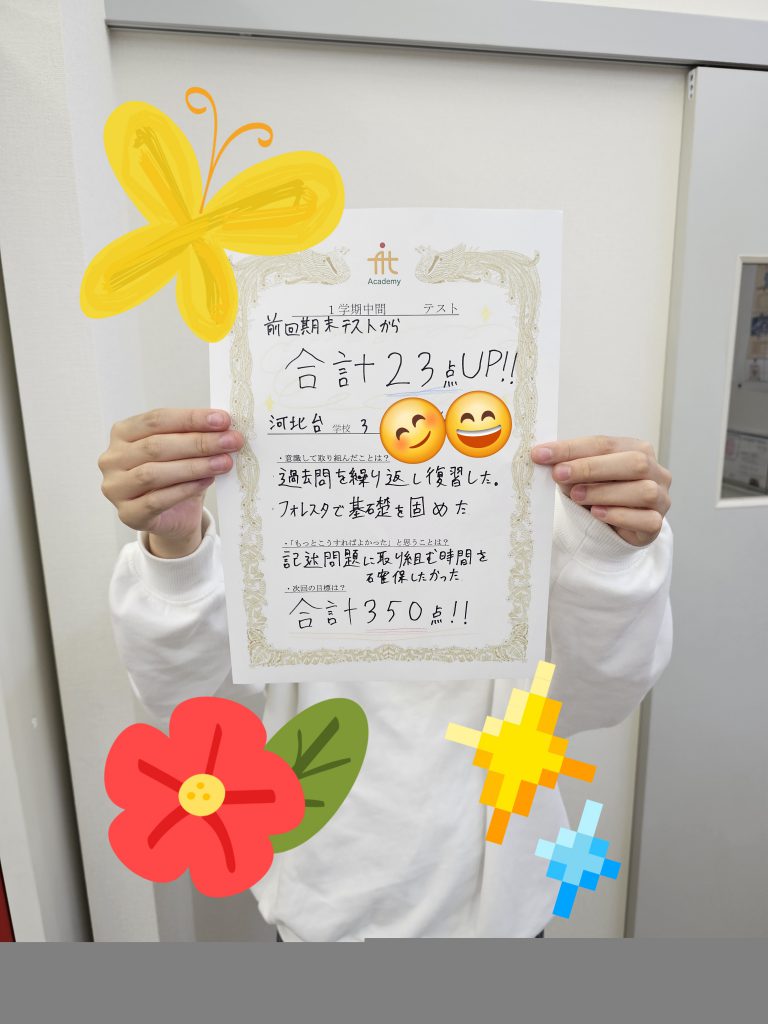 fit
Academy
1学期中間 テスト
前回期末テストから
合計23点UP!!
河北台 学校 3
・意識して取り組んだことは?
過去問を繰り返し復習した。
フォレスタで基礎を固めた
・「もっとこうすればよかった」と思うことは?
記述問題に取り組む時間を
確保したかった
・次回の目標は?
合計350点!!